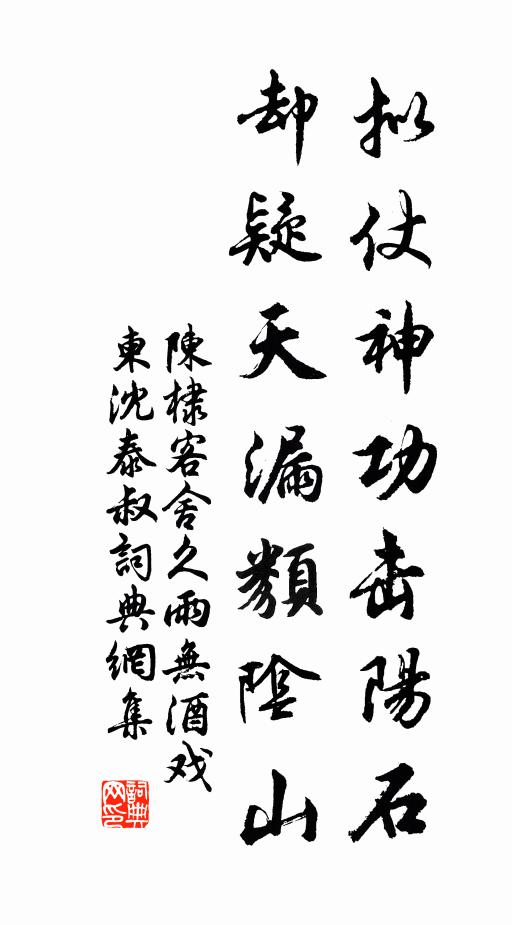 拟仗神功击陽石
却疑天漏類陰山
陳棣客舍久雨無酒戏
東沈泰叔詞典網集
詞典网印